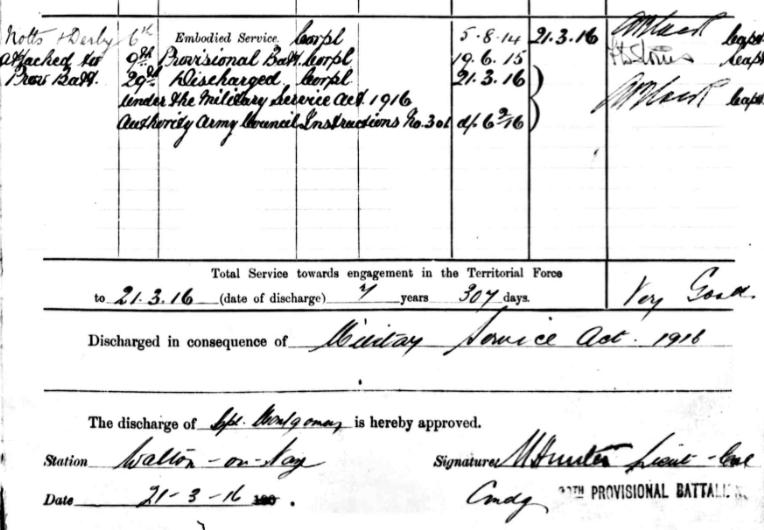 Notts & Derby 6th Embodied Service. Corpl 5-8-14 21.3.16 Capt
attached to 9th Provisional Batt. Corpl 19.6.15 Capt
Prov Batt. 29th Discharged Corpl 21.3.16
under the Military Service Act 1916 Capt.
Authority Army Council Instructions No. 301 d/
Total Service towards engagement in the Territorial Force
to 21.3.16 (date of discharge) 7 years 307 days. Very Good
Discharged in consequence of Military Service Act. 1916
The discharge of Montgomery is hereby approved.
Station Walton-on-Naze Signature Hunter Lieut-Col
Date 21-3-16 Cmdg TH PROVISIONAL BATTALION